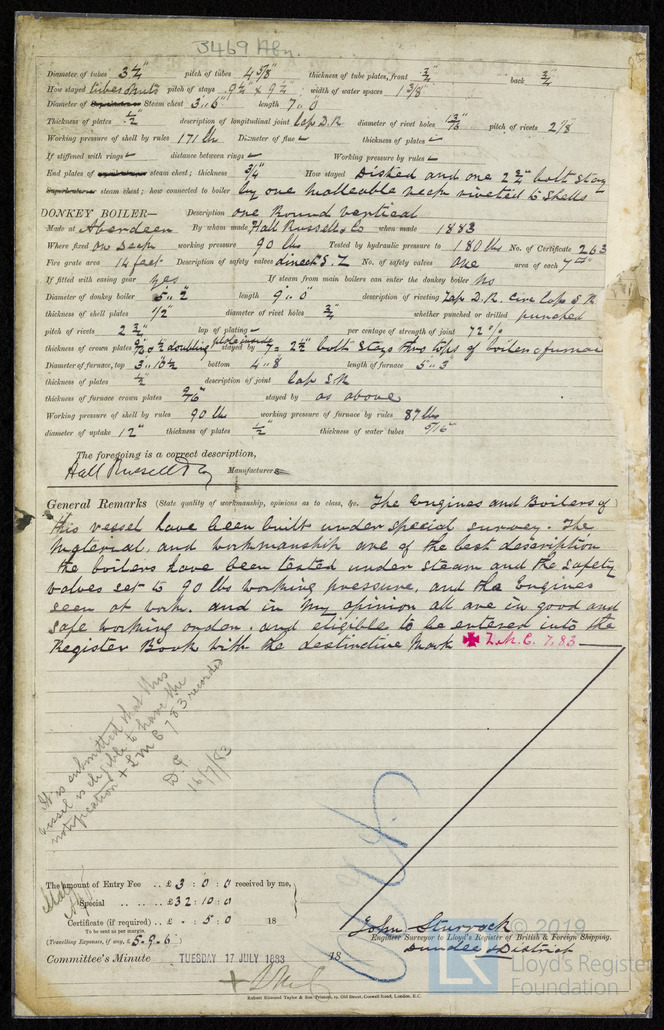 3469 Abn.
Diameter of tubes 3¼" pitch of tubes 4 5/8" thickness of tube plates, front ¾" back ¾"
How stayed tubes & nuts pitch of stays 9½" x 9½" width of water spaces 1 3/8"
Diameter of Superheater Steam chest 3..6" length 7"0
Thickness of plates ½" description of longitudinal joint Lap D.R. diameter of rivet holes 13/16" pitch of rivets 2 7/8
Working pressure of shell by rules 171 lb Diameter of flue thickness of plates
If stiffened with rings distance between rings Working pressure by rules
End plates of steam chest; thickness ¾" How stayed Dished and one 2¾" bolt stay
Superheater steam chest; how connected to boiler by one malleable neck riveted to Shells
DONKEY BOILER— Description one Round vertical
Made at Aberdeen By whom made Hall Russell & Co when made 1883
Where fixed on Deck working pressure 90 lbs Tested by hydraulic pressure to 180 lbs No. of Certificate 263
Fire grate area 14 feet Description of safety valves direct S. L No. of safety valves One area of each 7
If fitted with easing gear yes If steam from main boilers can enter the donkey boiler No
Diameter of donkey boiler 5.. 2 length 9"0 description of riveting Lap D.R. Circ Lap S R
thickness of shell plates ½" diameter of rivet holes ¾" whether punched or drilled punched
pitch of rivets 2¾" lap of plating per centage of strength of joint 72 %
thickness of crown plates 9/16 & ½ doubling plate inside stayed by 7 = 2½" bolt Stays thro tops of boiler & furnace
Diameter of furnace, top 3"10½ bottom 4"8 length of furnace 5"3
thickness of plates ½" description of joint Lap S.R.
thickness of furnace crown plates 9/16" stayed by as above
Working pressure of shell by rules 90 lb working pressure of furnace by rules 87 lbs
diameter of uptake 12" thickness of plates ½" thickness of water tubes 5/16"
The foregoing is a correct description,
Hall Russell & Co Manufacturers
General Remarks (State quality of workmanship, opinions as to class, &c. The Engines and Boilers of
this vessel have been built under special survey. The
material, and workmanship are of the best description
the boilers have been tested under steam and the safety
valves set to 90 lbs working pressure, and the Engines
seen at work. and in my opinion all are in good and
safe working order. and eligible to be entered into the
Register Book with the distinctive Mark ✠ L.M.C. 7,83
It is submitted that this
vessel is eligible to have the
notification + LMC 7 83 recorded
16/7/83
The amount of Entry Fee .. £ 3 : 0 : 0 received by me,
Special .. .. £ 32 : 10 : 0
Certificate (if required) .. £ - : 5 : 0 18
To be sent as per margin.
(Travelling Expenses, if any, £ 5-9-6 )
John Sturrock
Engineer Surveyor to Lloyd's Register of British & Foreign Shipping.
Dundee District
Committee's Minute TUESDAY 17 JULY 1883 18
Robert Edmund Taylor & Son Printers, 19, Old Street, Goswell Road, London, E.C.
© 2019
LR
Lloyd's Register
Foundation